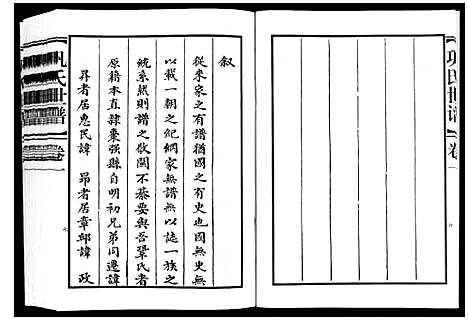 叙
從來家之有譜猶國之有史也國無史無
以載一朝之紀綱家無譜無以誌一族之
統系然則譜之攸關不綦要與吾鞏氏者
原籍本直隸棗强縣自明初兄弟同遷諱
昇者居惠民諱 昻者居章邱諱 政
氏世譜
卷一
氏世谱
卷一